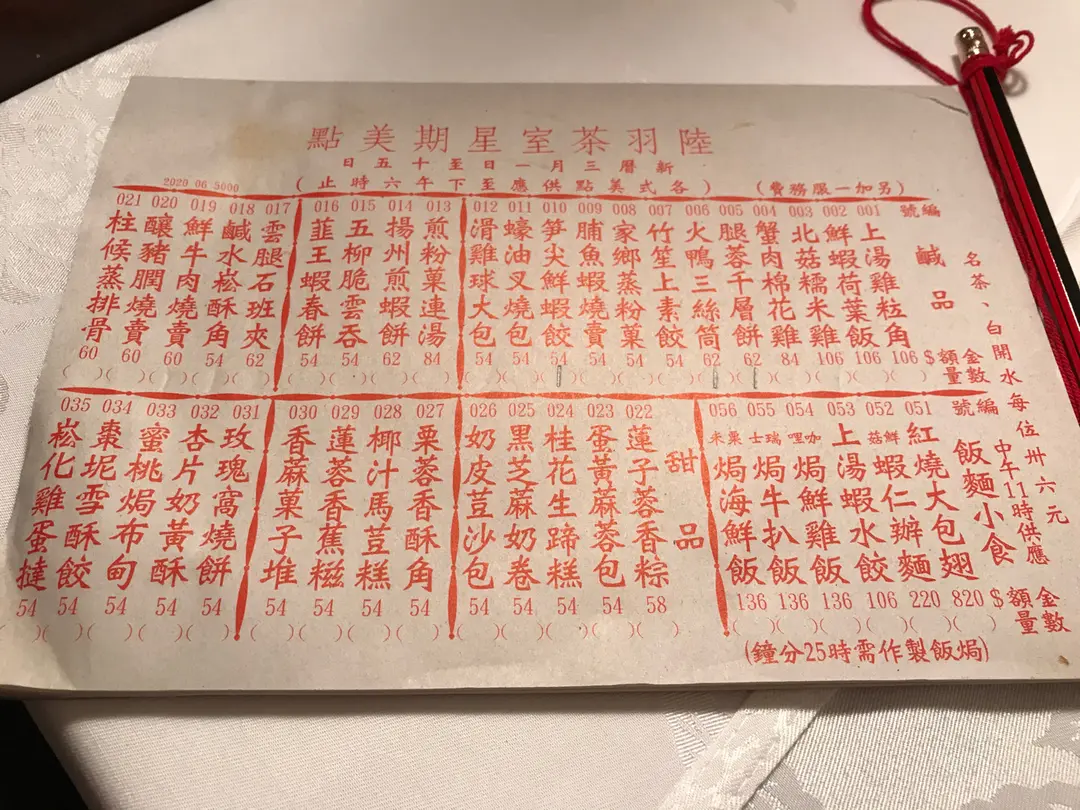 陸羽茶室星期美點
新曆三月一日至十五日
(另加一服務費)
(各式美點供應至下午六時止)
2020 06 5000
名茶、白開水每位卅六元
鹹品
編號
金額$
數量
001 上湯雞粒角 106
002 鮮蝦荷葉飯 106
003 北菇糯米雞 106
004 蟹肉棉花雞 84
005 腿蓉千層餅 62
006 火鴨三絲筒 62
007 竹笙上素餃 54
008 家鄉蒸粉菓 54
009 脯魚蝦燒賣 54
010 笋尖鮮蝦餃 54
011 蠔油叉燒包 54
012 滑雞球大包 54
013 煎粉菓連湯 84
014 揚州煎蝦餅 62
015 五柳脆雲吞 54
016 韮王蝦春餅 54
017 雲腿石班夾 62
018 鹹水崧酥角 54
019 鮮牛肉燒賣 60
020 釀豬膶燒賣 60
021 柱候蒸排骨 60
中午11時供應
飯麵小食
編號
金額$
數量
051 紅燒大包翅 820
052 鮮菇蝦仁辦麵 220
053 上湯蝦水餃 106
054 咖哩焗鮮雞飯 136
055 瑞士焗牛扒飯 136
056 粟米焗海鮮飯 136
(焗飯製作需時25分鐘)
甜品
022 蓮子蓉香粽 58
023 蛋黃蔴蓉包 54
024 桂花生蹄糕 54
025 黑芝蔴奶卷 54
026 奶皮荳沙包 54
027 栗蓉香酥角 54
028 椰汁馬荳糕 54
029 蓮蓉香蕉糍 54
030 香蔴菓子堆 54
031 玫瑰窩燒餅 54
032 杏片奶黃酥 54
033 蜜桃焗布甸 54
034 棗坭雪酥餃 54
035 崧化雞蛋撻 54